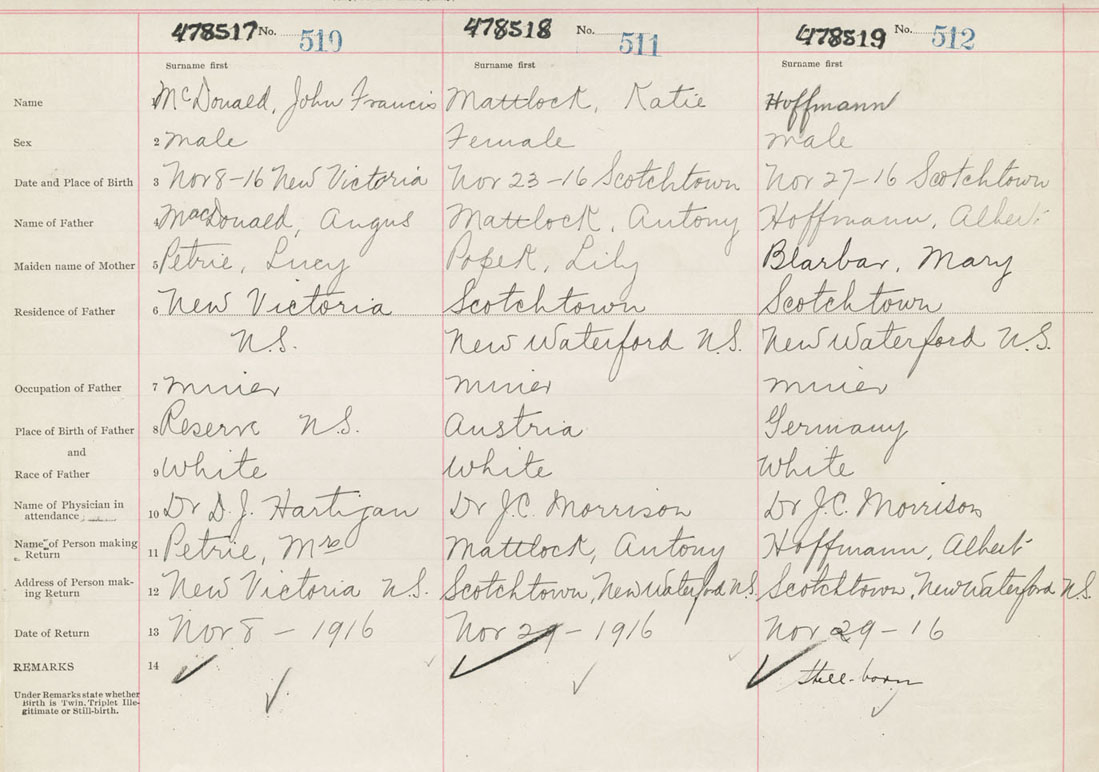 478517 No. 510 478518 No. 511 478519 No. 512
Surname first Surname first Surname first
Name 1 McDonald, John Francis Mattlock, Katie Hoffmann
Sex 2 male Female male
Date and Place of Birth 3 Nov 8-16 New Victoria Nov 23-16 Scotchtown Nov 27-16 Scotchtown
Name of Father 4 MacDonald, Angus Mattlock, Antony Hoffmann, Albert
Maiden name of Mother 5 Petrie, Lucy Popek, Lily Blarbar, Mary
Residence of Father 6 New Victoria Scotchtown Scotchtown
N.S. New Waterford N.S. New Waterford N.S.
Occupation of Father 7 miner miner miner
Place of Birth of Father 8 Reserve N.S. Austria Germany
and
Race of Father 9 White White White
Name of Physician in
attendance 10 Dr D.J. Hartigan Dr J.C. Morrison Dr J.C. Morrison
Name of Person making
Return 11 Petrie, Mrs Mattlock, Antony Hoffmann, Albert
Address of Person mak-
ing Return 12 New Victoria N.S. Scotchtown, New Waterford N.S. Scotchtown, New Waterford N.S.
Date of Return 13 Nov 8 - 1916 Nov 29 - 1916 Nov 29 - 16
REMARKS 14 Still-born
Under Remarks state whether
Birth is Twin, Triplet Ille-
gitimate or Still-birth.